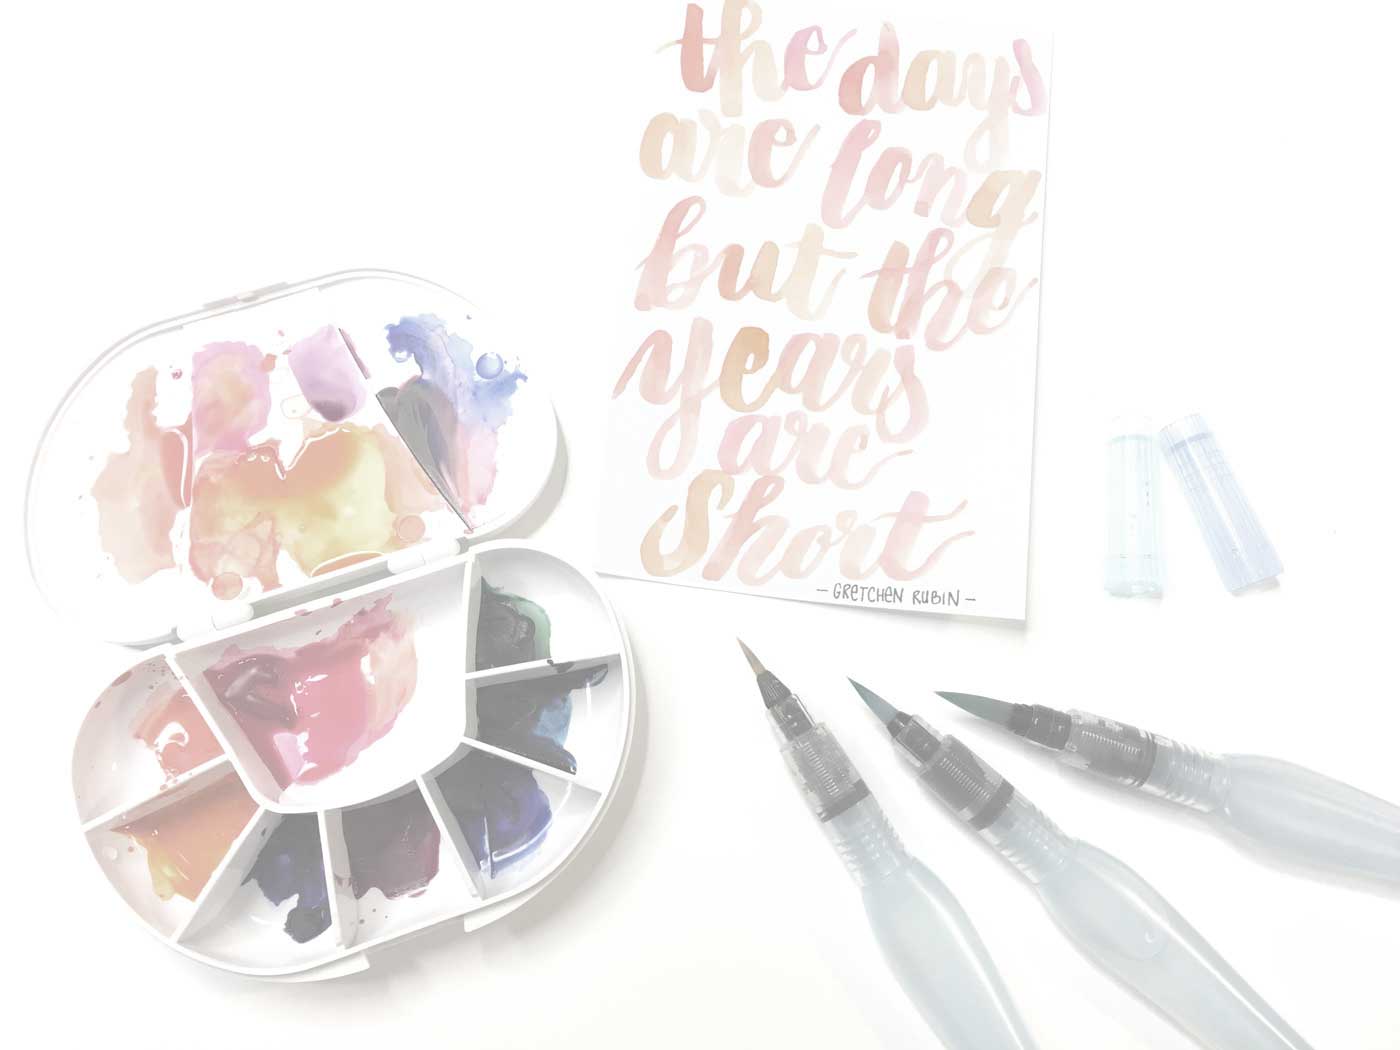 the days
are long
but the
years
are
Short
- GRETCHEN RUBIN -